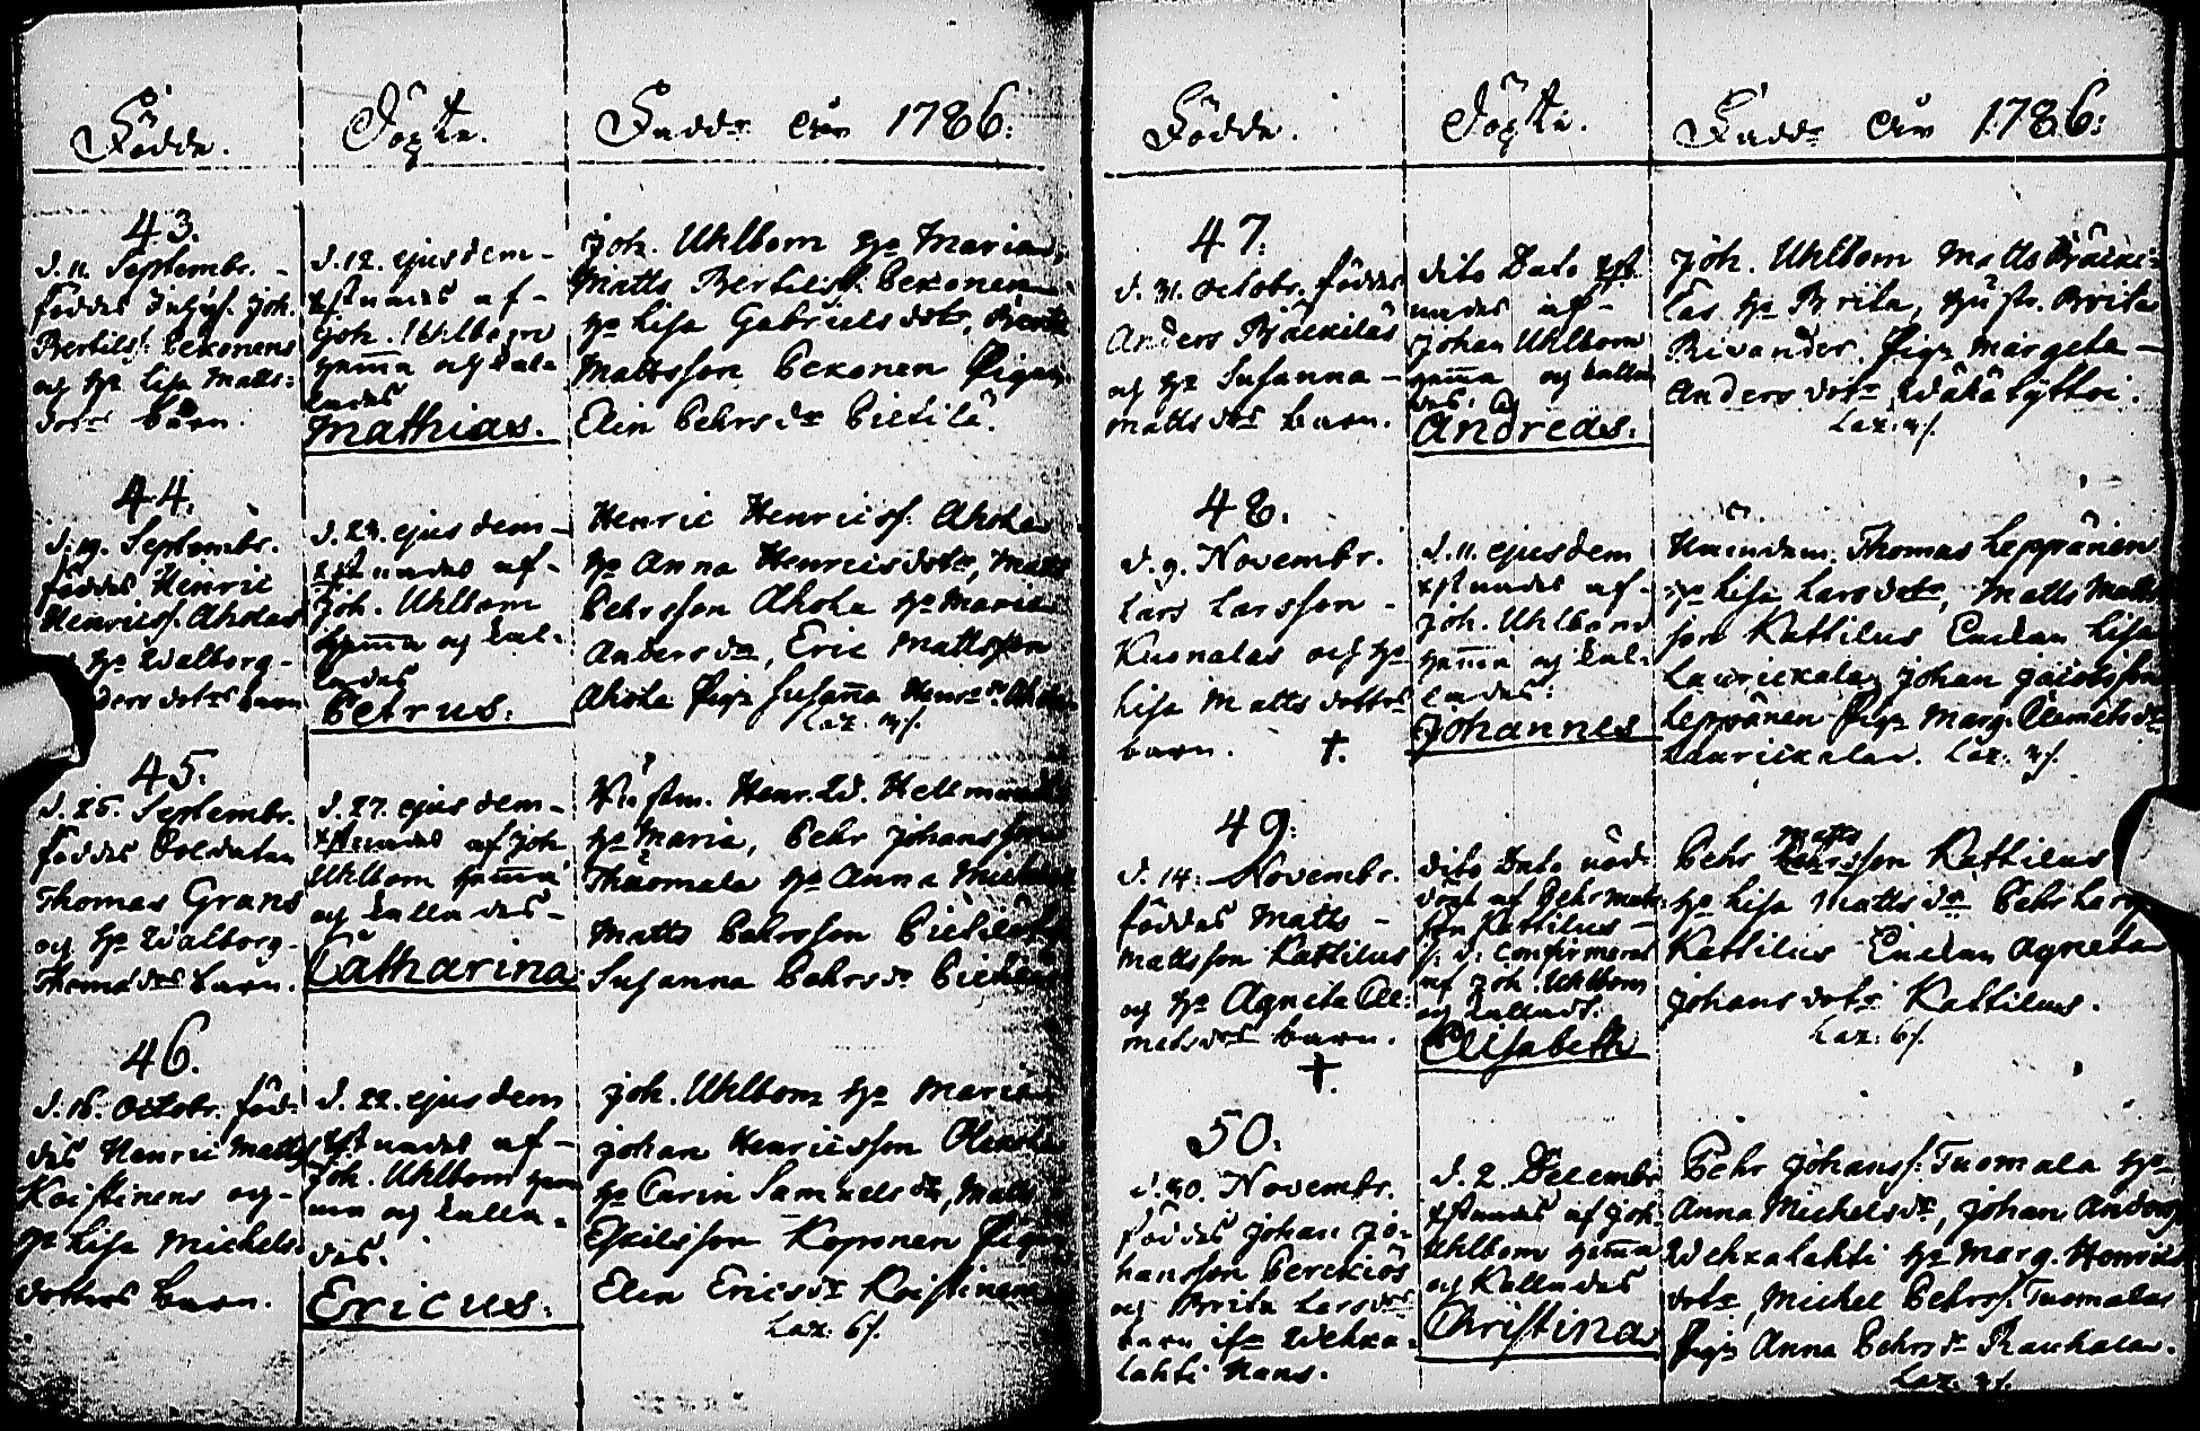 Födde.
Döpte.
Fadd: åhr 1786:
43.
d. 11. Septembr. -
föddes Joh.
Bertils: Pekonens
och h: Lisa Matts:
dotrs barn.
d. 12. ejusdem -
Xstnades af -
Joh. Uhlbom
hemma och kalla
lades
Mathias.
Joh. Uhlbom h: Maria,
Matts Bertilss: Pekonen
h: Lisa Gabriels dotr,
Mattsson Pekonen Pigan
Elin Pehrs dr Pietilä.
44.
d. 19. Septembr.
föddes Henric
Henricss: Aholas
h: Walborg -
ders dotrs barn
d. 24. ejusdem -
Xstnades af -
Joh. Uhlbom
hemma och kal-
lades
Petrus.
Henric Henricss: Ahola
h: Anna Henricsdotr, Matts
Pehrsson Ahola h: Maria
Anders dr, Eric Mattsson
Ahola Pig: Susanna Henrs dr Ahola
Laz. 4/.
45.
d. 25. Septembr.
föddes Soldaten
Thomas Grans
och h: Walborg -
Thoms drs barn.
d. 27. ejusdem -
Xstnades af Joh
Uhlbom hemma
och kallades -
Catharina
Henr. W. Hellman
h: Maria, Pehr Johansson
Thuomala h: Anna Michels
Matts Pehrsson Pietilä
Susanna Pehrs dr Pietilä
46.
d. 16. Octobr. föd:
des Henric Matts
Koistinens och -
h: Lisa Michels
dotters barn.
d. 22. ejusdem
Xstnades af -
Joh. Uhlbom hem
ma och kalla-
des.
Ericus.
Joh. Uhlbom h: Maria
Johan Henricsson
h: Carin Samuels dr, Matts
Eskilsson Koponen Pigan
Elin Erics dr Koistinen
Laz: 6/.
Födde.
Döpte.
Fadd: åhr 1786:
47.
d. 31. Octobr. föddes
Anders Bjäckiläs
och h: Susanna -
Matts drs barn.
dito Dato Xst
nades af -
Johan Uhlbom
hemma och kalla
des.
Andreas.
Joh. Uhlbom Matts Bräcki:
läs h: Brita, hustr. Brita
Rivander. Pig: Margeta -
Anders dotr
Laz: 4/.
48.
d. 9. Novembr.
Lars Larsson -
Kuonalas och h:
Lisa Matts dotters
barn. †.
d. 11. ejusdem
Xstnades af -
Joh. Uhlbom
hemma och kal-
lades.
Johannes
Thomas Leppänen
h: Lisa Lars dotr, Matts Matts
son Kattilus Enckan Lisa
Laurickala, Johan Jacobsson
Leppänen Pig: Marg: Clemets dr
Laurickala. Laz: 4/.
49.
d. 14. Novembr.
föddes Matts -
Mattsson Kattilus
och h: Agneta Cle:
mets drs barn.
†.
dito Dato nöd:
döpt af Pehr Matts:
son Kattilus -
Confirmerat
af Joh. Uhlbom
och kallades.
Elisabeth
Pehr Matts Pehrsson Kattilus
h: Lisa Matts dr Pehr Lars
Kattilus Enckan Agneta
Johans dotr Kattilus.
Laz: 6/.
50.
d. 30. Novembr.
föddes Johan Jo-
hansson Perckiös
och Brita Lars drs
barn Wehka-
lahti
d. 2. Decembr
Xstnades af Joh.
Uhlbom hemma
och Kallades
Christina
Pehr Johanss: Tuomala h:
Anna Michels dr, Johan Anderss
Wehkalahti h: Marg. Henrics
dotr, Michel Pehrss: Tuomala
Pig: Anna Pehrs dr Rauhala.
Laz. 4/.